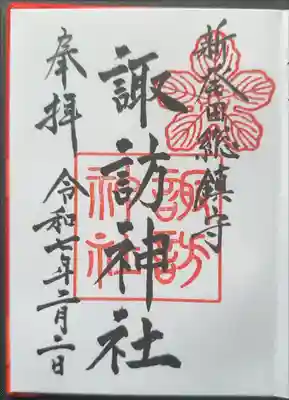 新発田総鎮守
諏訪神社
諏訪
神社
奉拝
令和七年二月二日